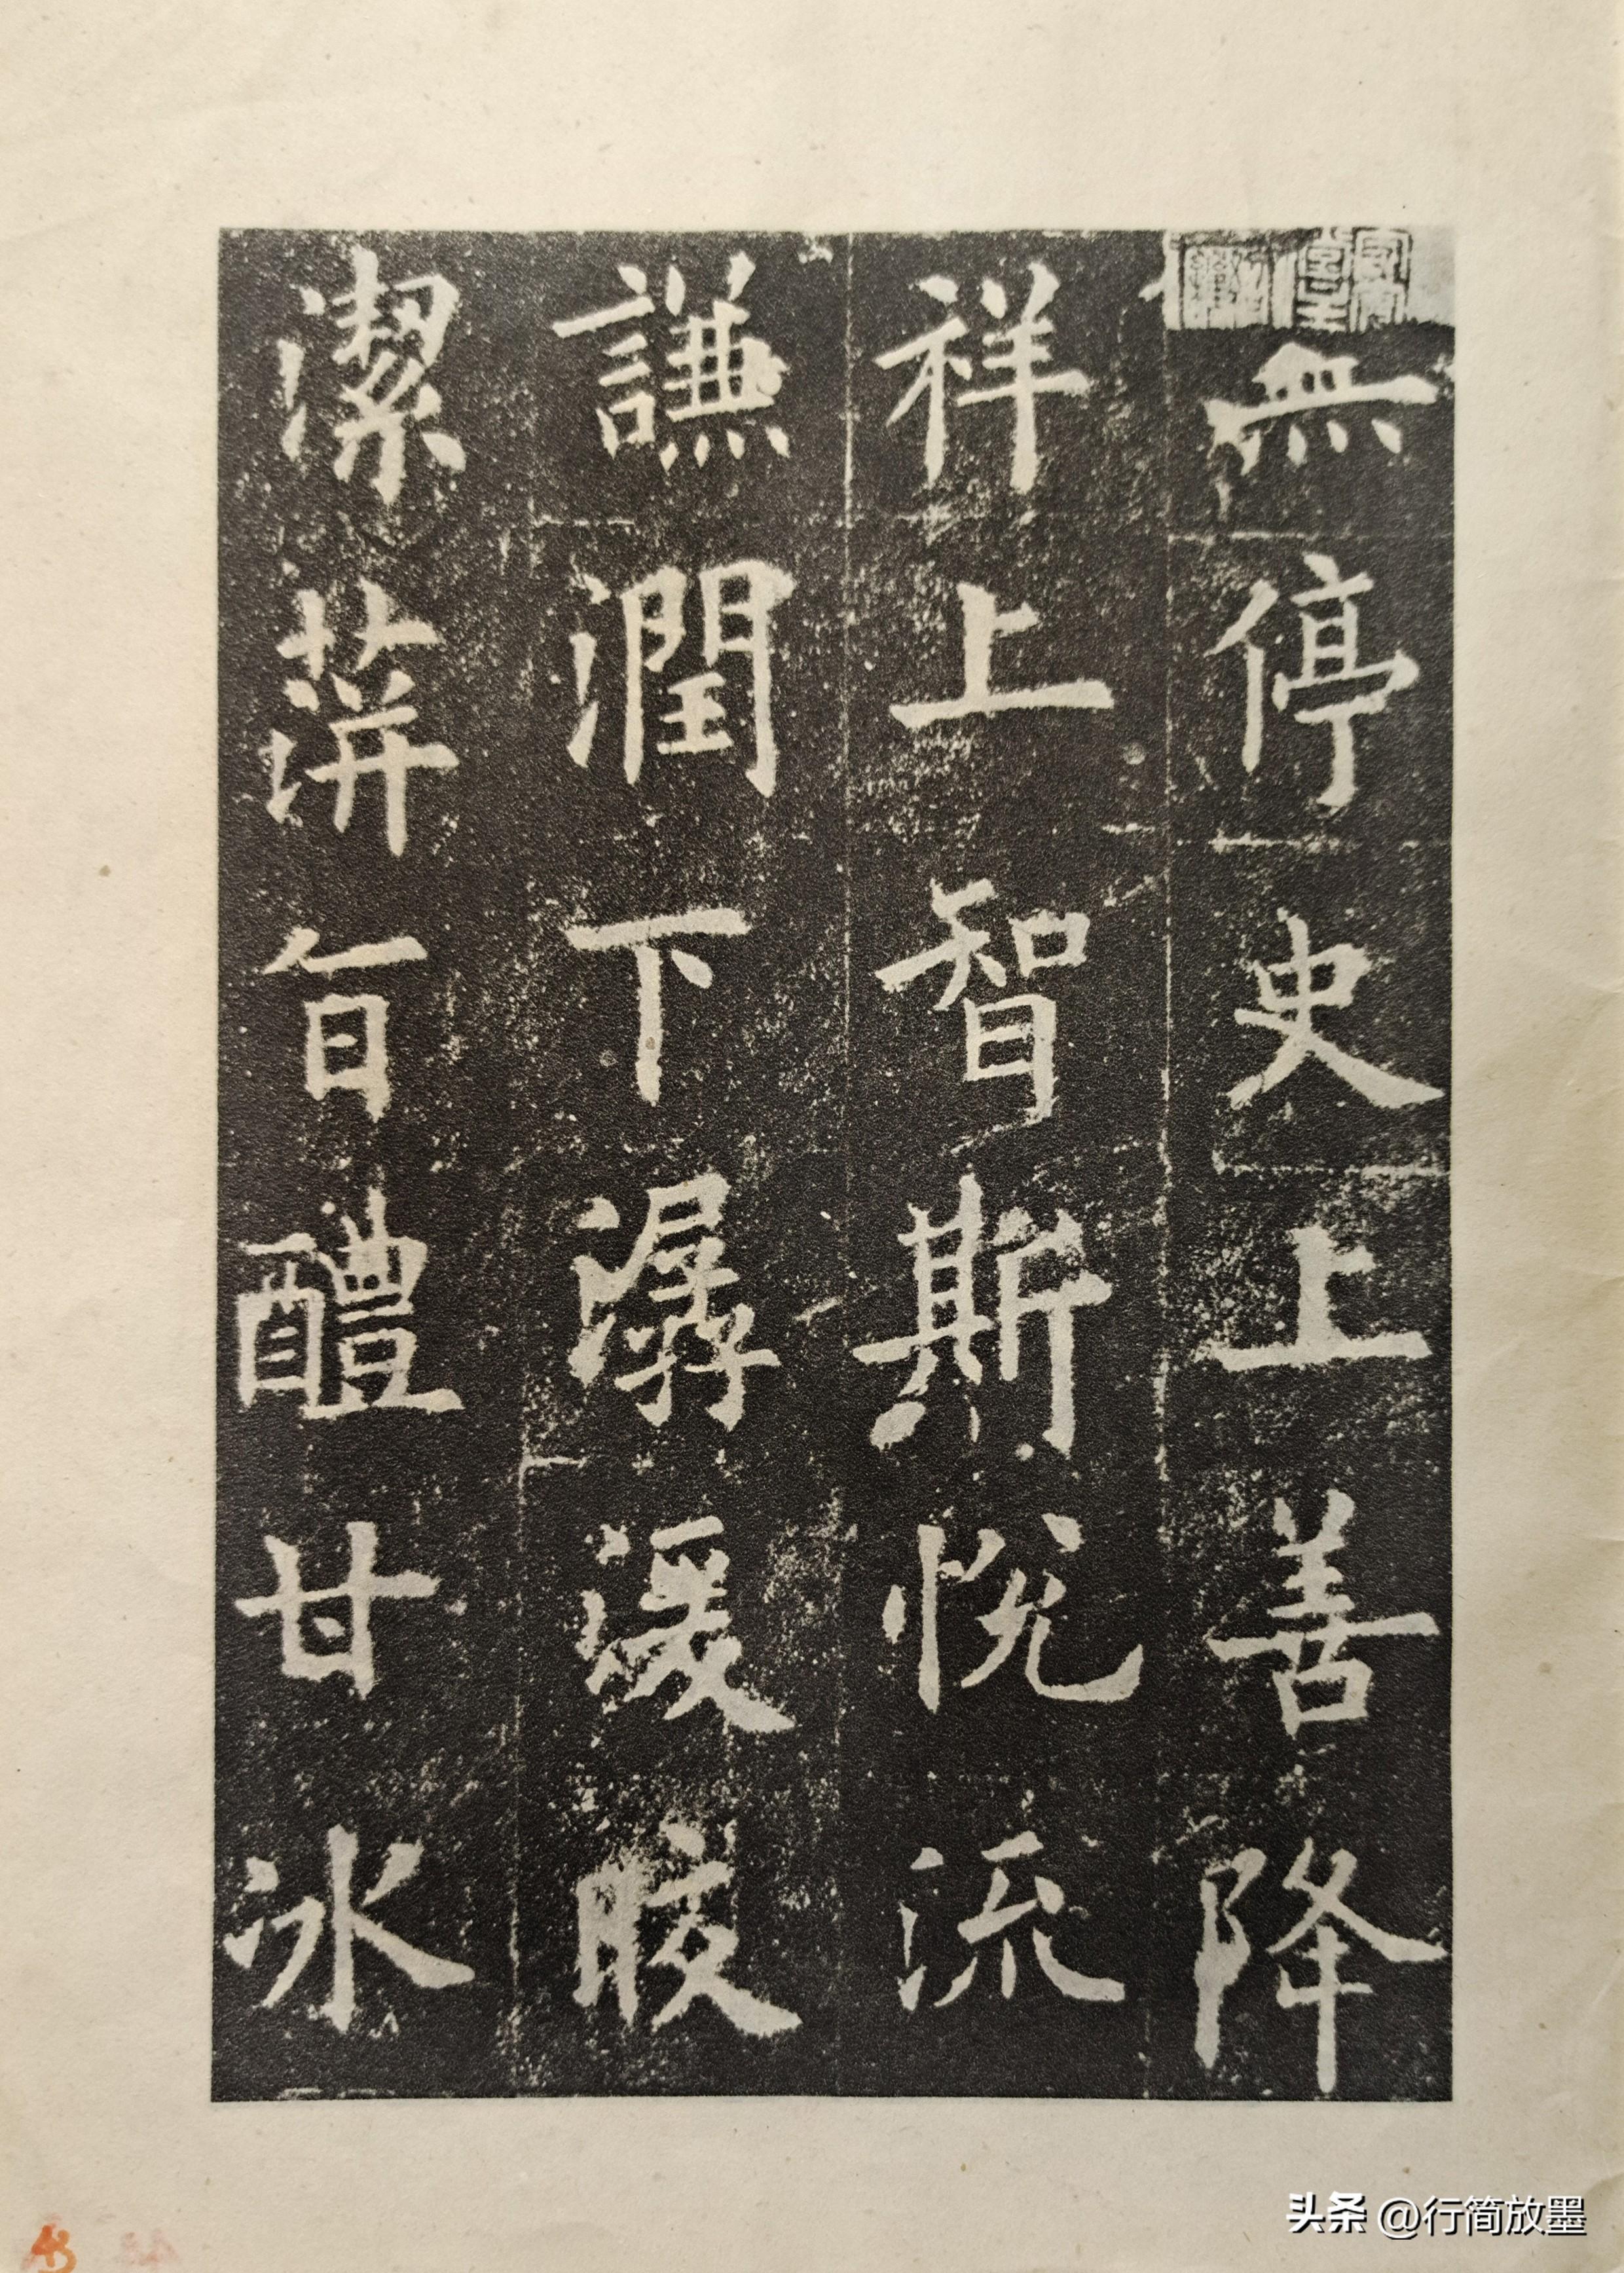 無停史上善降
祥上智斯悦流
謙潤下潺湲皎
潔蓱旨醴甘冰
头条 @行简放墨
43